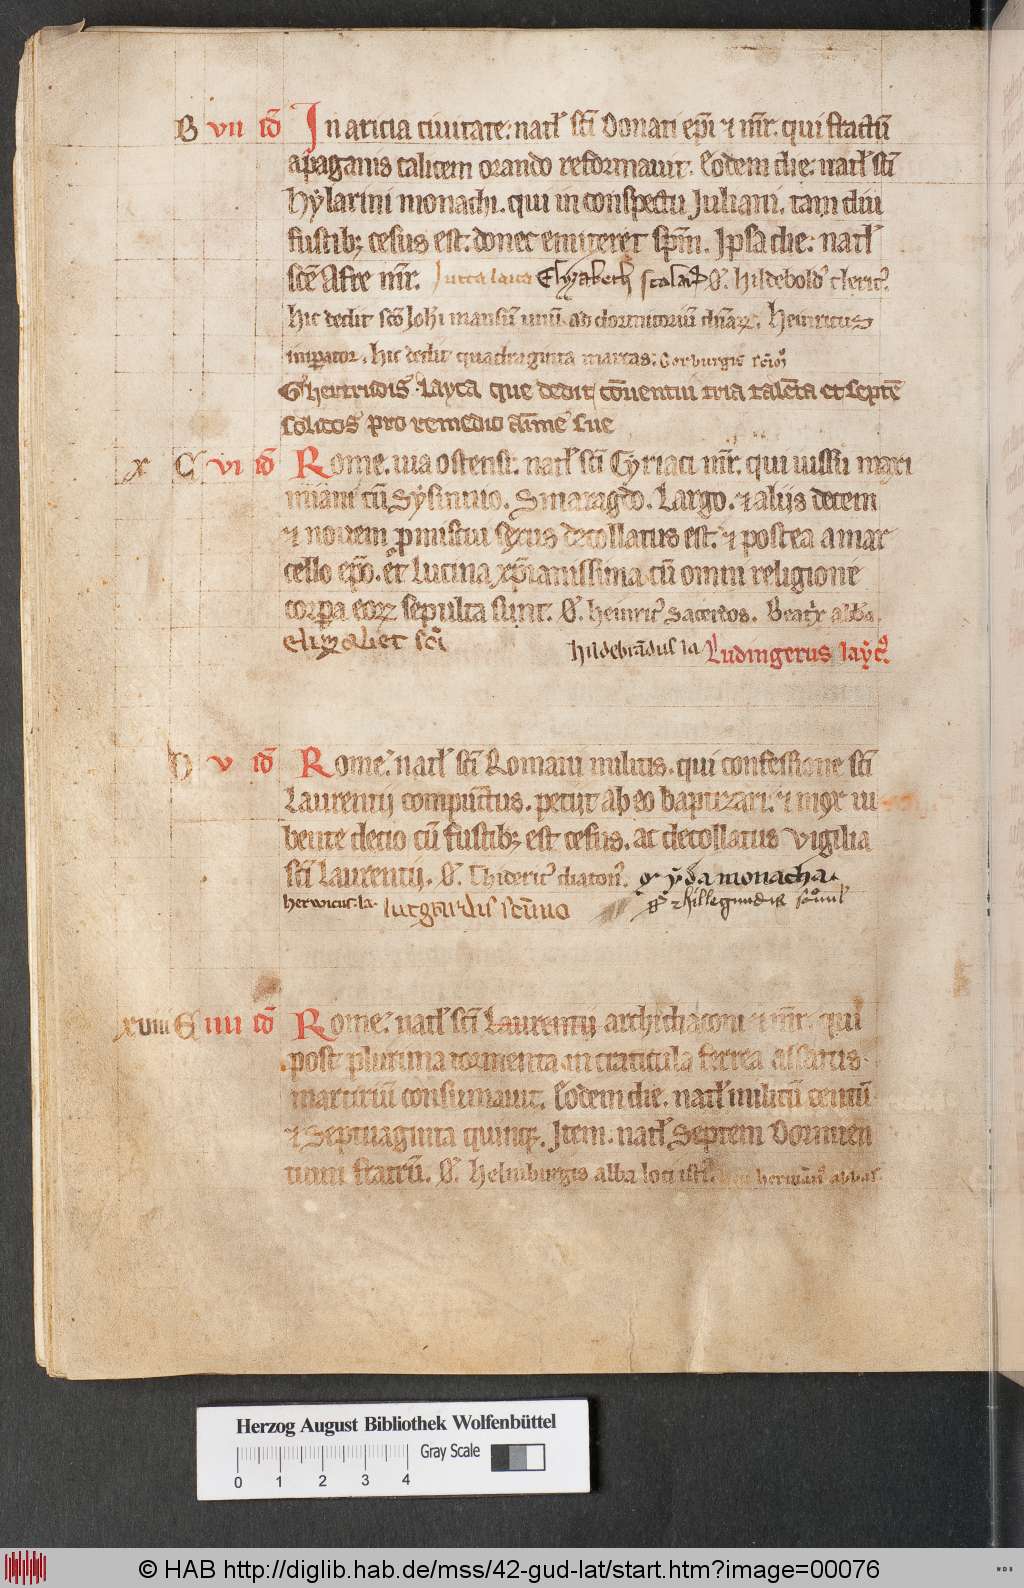 B vii id̄ In aricia ciuitate: natl̕ sc̄i Donati ep̄i ⁊ mr̄. qui fractū
a paganis calicem orando reformauit. Eodem die: natl̕ sc̄i
Hylarini monachi. qui in conspectu Juliani. tam diu
fustib; cesus est. donec emitteret sp̄m. Ipsa die: natl̕
sc̄e Afre mr̄. Jutta laica Elyzabeth scolar̄ O. Hildebold᾽ cleric᾽.
Hic dedit sc̄o Joh̄i mansū unū ad dormitoriū dn̄aꝝ. Heinricus
imp̄ator. hic dedit quadraginta marcas.
Ghertrudis layca que dedit cōuentui tria talēta et septē
solidos pro remedio aīme sue
x C vi id̄ Rome. uia ostensi. natl̕ sc̄i Cyriaci mr̄. qui iussu maxi
miani cū Sysinnio. Smaragdo. Largo. ⁊ aliis decem
⁊ nouem promiscui sexus decollatus est. ⁊ postea a mar
cello ep̄o. et Lucina xp̄ianissima cū omni religione
corpa eoꝝ sepulta sunt. O. Heinric᾽ sacerdos. Beatrix abba.
Elizabet sc̄i
Hildebrādus la Ludingerus layc᾽.
D v id̄ Rome. natl̕ sc̄i Romani militis. qui confessione sc̄i
Laurentij compunctus. petiit ab eo baptizari. ⁊ mox iu
bente decio cū fustib; est cesus. ac decollatus Vigilia
sc̄i Laurentij. O. Thideric᾽ diacon᾽. monacha.
herwicus. la. lutgardis
⁊ hillegundis
xviii E iiii id̄ Rome. natl̕ sc̄i Laurentij archidiaconi ⁊ mr̄. qui
post plurima tormenta in craticula ferrea assatus
martiriū consumauit. Eodem die. natl̕ militū centū
⁊ Septuaginta quinq;. Item. natl̕ Septem Dormien
tium fratrū. O. Helmburgis abba loci isti᾽. hermān᾽ abbas.
Herzog August Bibliothek Wolfenbüttel
0 1 2 3 4 Gray Scale
© HAB http://diglib.hab.de/mss/42-gud-lat/start.htm?image=00076